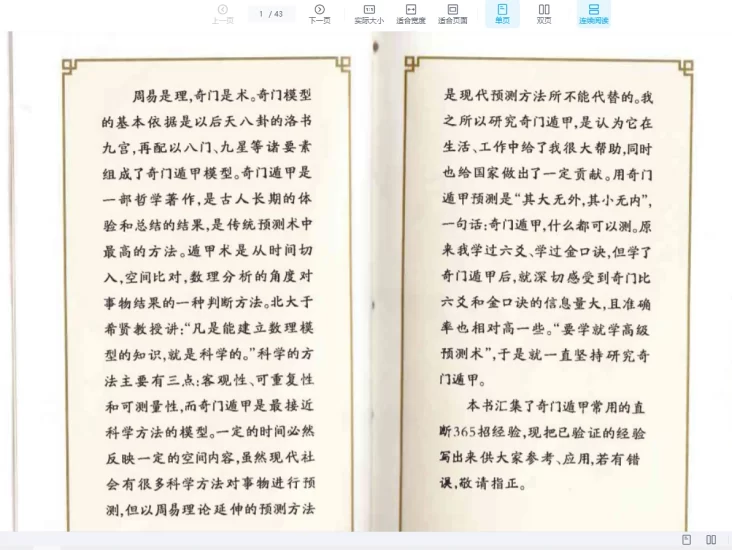 上一页
1 / 43
下一页
实际大小
适合宽度
适合页面
单页
双页
连续阅读
周易是理,奇门是术。奇门模型
的基本依据是以后天八卦的洛书
九宫,再配以八门、九星等诸要素
组成了奇门遁甲模型。奇门遁甲是
一部哲学著作,是古人长期的体
验和总结的结果,是传统预测术中
最高的方法。遁甲术是从时间切
入,空间比对,数理分析的角度对
事物结果的一种判断方法。北大于
希贤教授讲:“凡是能建立数理模
型的知识,就是科学的。”科学的方
法主要有三点:客观性、可重复性
和可测量性,而奇门遁甲是最接近
科学方法的模型。一定的时间必然
反映一定的空间内容,虽然现代社
会有很多科学方法对事物进行预
测,但以周易理论延伸的预测方法
是现代预测方法所不能代替的。我
之所以研究奇门遁甲,是认为它在
生活、工作中给了我很大帮助,同时
也给国家做出了一定贡献。用奇门
遁甲预测是“其大无外,其小无内”,
一句话:奇门遁甲,什么都可以测。原
来我学过六爻、学过金口诀,但学了
奇门遁甲后,就深切感受到奇门比
六爻和金口诀的信息量大,且准确
率也相对高一些。“要学就学高级
预测术”,于是就一直坚持研究奇
门遁甲。
本书汇集了奇门遁甲常用的直
断365招经验,现把已验证的经验
写出来供大家参考、应用,若有错
误,敬请指正。